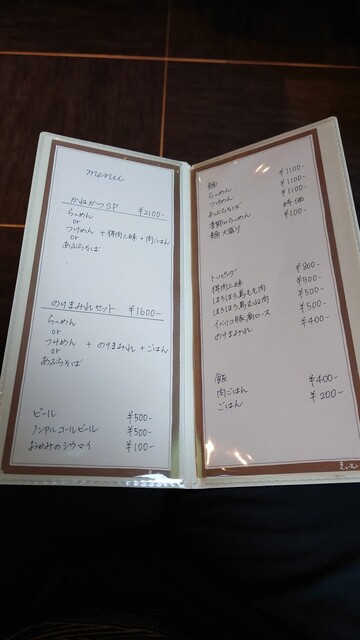 menu
かねかつSP ¥2100-
らーめん
or
つけめん + 得肉三味 + 肉ごはん
or
あぶらそば
のりまみれセット ¥1600-
らーめん
or
つけめん + のりまみれ + ごはん
or
あぶらそば
ビール ¥500-
ノンアルコールビール ¥500-
おかみのシウマイ ¥100-
麺
らーめん ¥1100-
つけめん ¥1100-
あぶらそば ¥1100-
季節のらーめん 時価
麺大盛り ¥100-
トッピング
得肉三味 ¥800-
ほろほろ鳥もも肉 ¥500-
ほろほろ鳥むね肉 ¥500-
イベリコ豚肩ロース ¥500-
のりまみれ ¥400-
飯
肉ごはん ¥400-
ごはん ¥200-